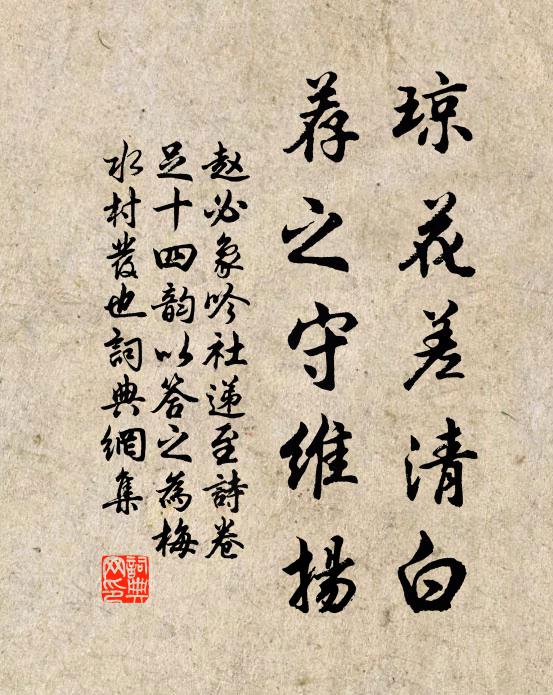 琼花差清白
荐之守维揚
赵必象吟社递至詩卷
足十四韵以答之為梅
水村發也詞典網集
詞典
网印